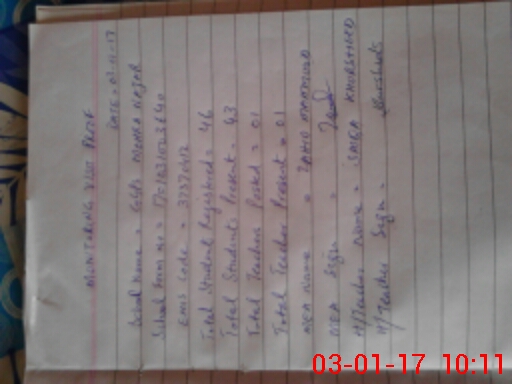 MONITORING VISIT PROOF
DATE = 03-01-17
School Name = GGPS MOHRA NAJAR
School Form No =
EMIS Code = 37370412
Total Student Registered = 46
Total Students Present = 43
Total Teacher Posted = 01
Total Teacher Present = 01
MEA Name = ZAHID MAHMOOD
MEA Sign =
H/Teacher Name = SAIRA KHURSHEED
H/Teacher Sign =
03-01-17 10:11